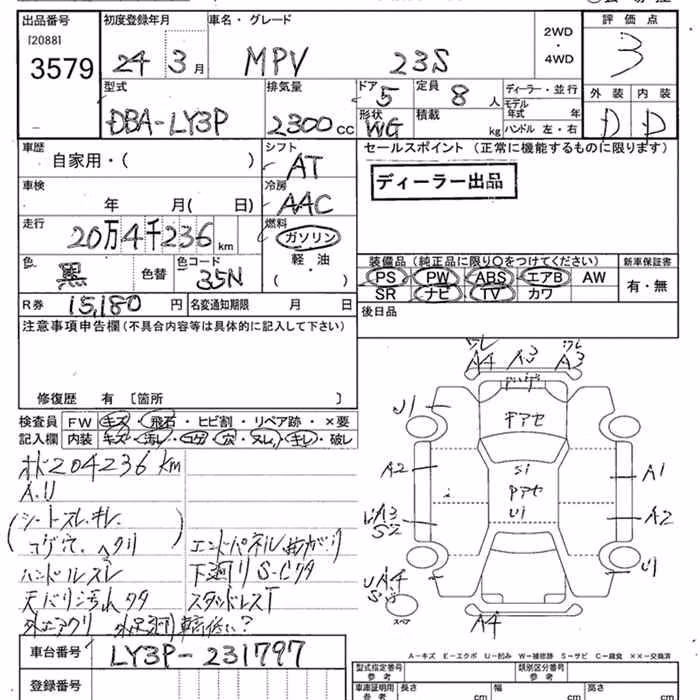 出品番号 初度登録年月 車名・グレード 評価点
[2088]
3579 24 3月 MPV 23S 2WD・4WD 3
型式 排気量 ドア 5 定員 8人 ディーラー・並行 外装 内装
DBA-LY3P 2300cc 形状 WG 積載 kg モデル年式 年 D D
ハンドル 左・右
車歴 シフト セールスポイント (正常に機能するものに限ります)
自家用・( ) AT
車検 冷房 ディーラー出品
年 月( 日) AAC
走行 燃料
20万4千236km ガソリン
色 色コード 軽・油 装備品 (純正品に限り○をつけてください) 新車保証書
黒 色替 35N ( ) PS PW ABS エアB AW 有・無
SR ナビ TV カワ
R券 15,180円 名変通知期限 月 日 後日品
注意事項申告欄 (不具合内容等は具体的に記入して下さい)
A4 A3 A3
修復歴 有 [箇所 ]
キアセ
U1
検査員 FW キズ・飛石・ヒビ割・リペア跡・×要
記入欄 内装 キズ・汚レ・コゲ・穴・ヌレ・キレ・破レ
A2 Si A1
Pアセ
U1
A3 A2
S2
オド204236km
A.U
(シートスレ.キレ.
コゲ穴.ヘタリ)
エンドパネル曲がり
ハンドルスレ 下廻りS-Cクタ
U1
A4
天バリ汚れクタ スタッドレスT
スペア
A4
車台番号 LY3P-231797
A-キズ E-エクボ U-凹み W-補修跡 S-サビ C-腐食 ××-交換済
型式指定番号 参考 類別区分番号 参考
登録番号 車庫証明用 参考 長さ cm 幅 cm 高さ cm